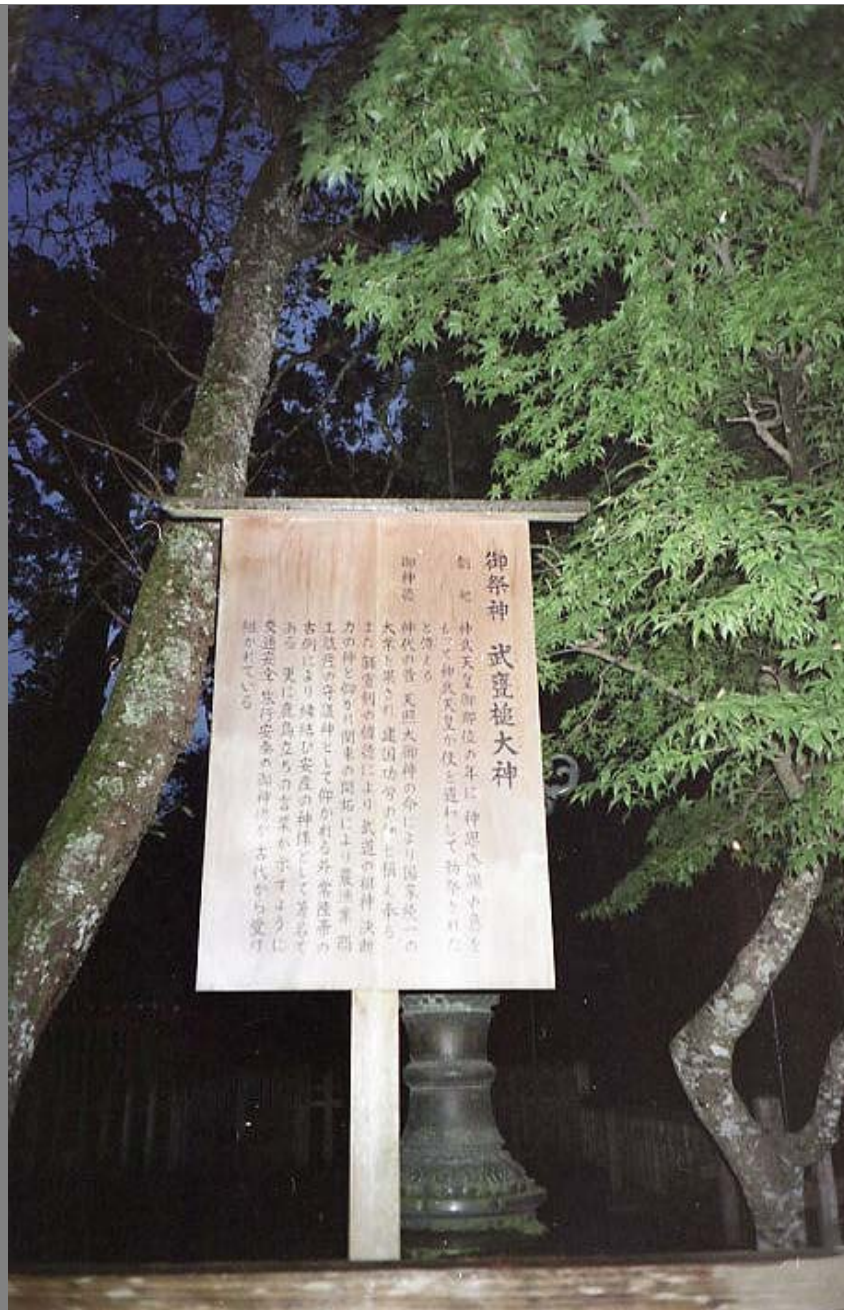 御祭神 武甕槌大神
創祀 神武天皇御即位の年に 神恩感謝の意を
もって神武天皇が使を遣わして勅祭された
と伝える
御神徳 神代の昔 天照大御神の命により国家統一の
大業を果され 建国功労の神と称え奉る
また韴霊剣の偉徳により 武道の祖神 決断
力の神と仰がれ 関東の開拓により農漁業 商
工殖産の守護神として仰がれる外 常陸帯の
古例により縁結び安産の神様として著名で
ある 更に鹿島立ちの言葉が示すように
交通安全 旅行安泰の御神徳が古代から受け
継がれている